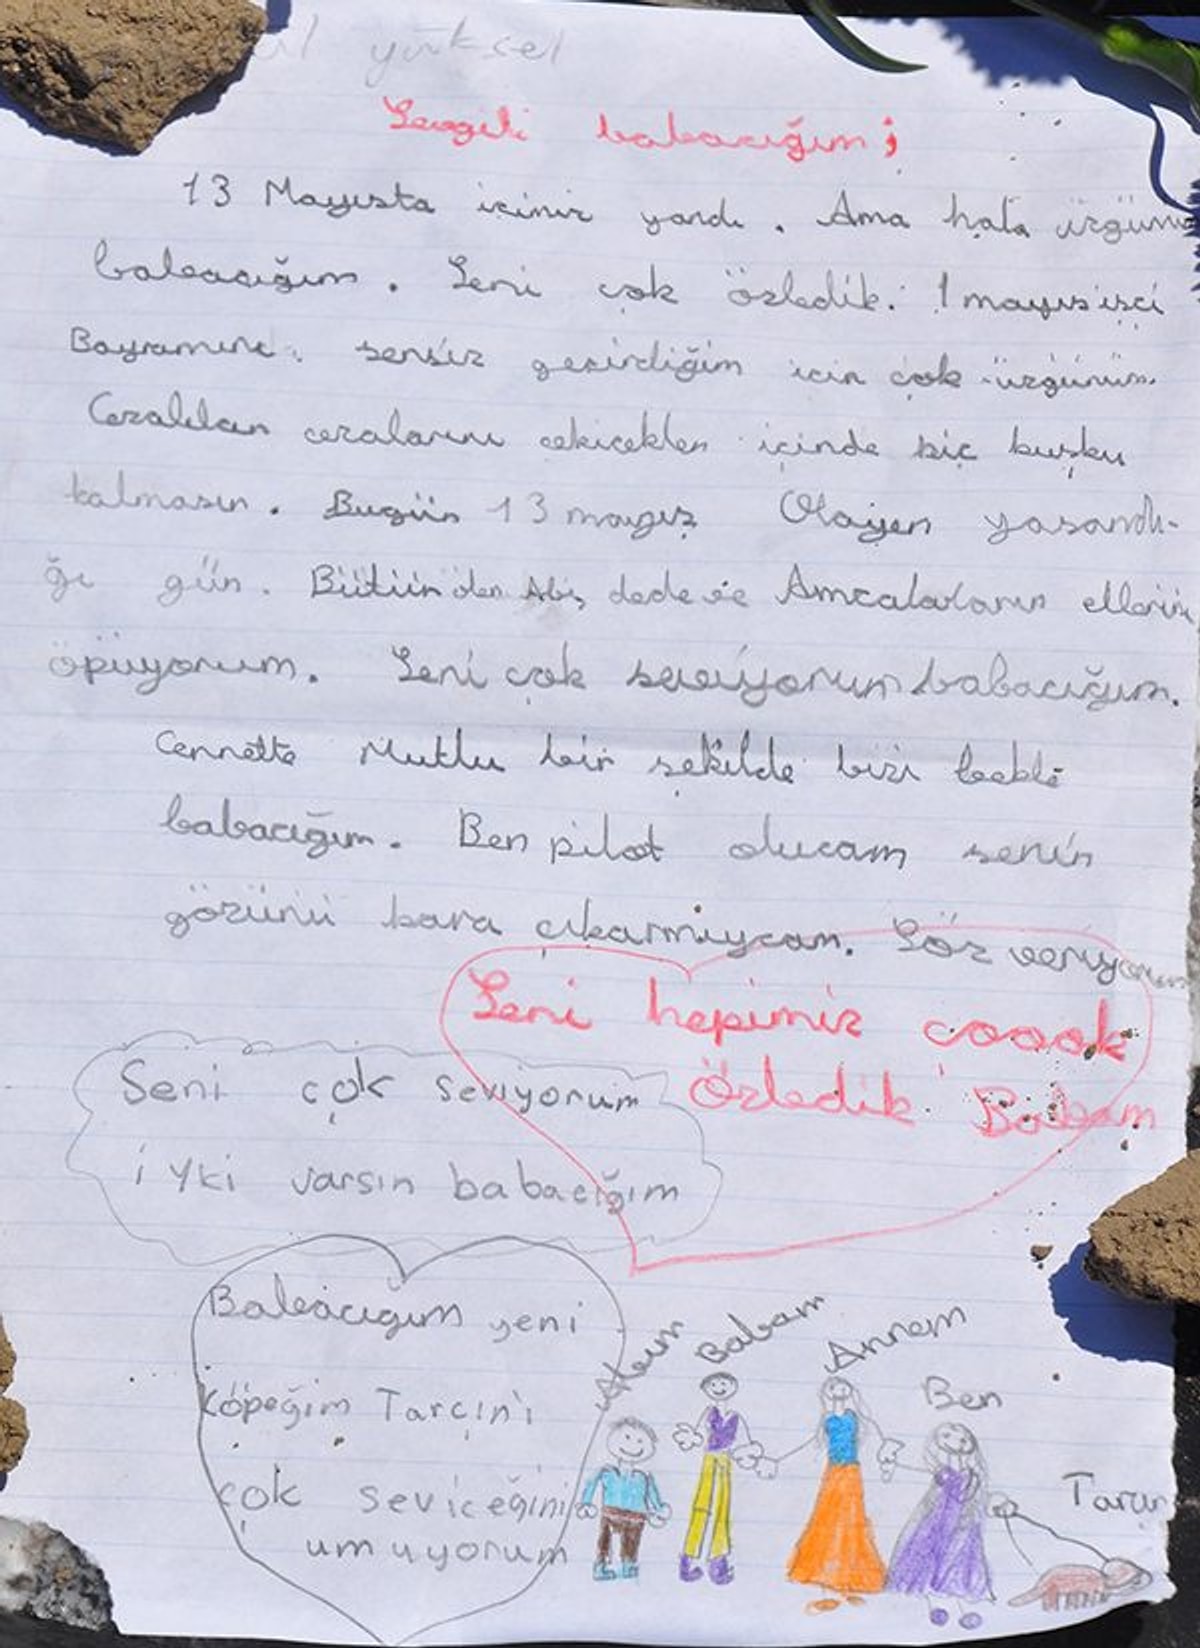 yüksel
Sevgili babacığım;
13 Mayısta içimiz yandı. Ama hala üzgünü
babacığım. Seni çok özledik. 1 mayıs işçi
Bayramını. sensiz geçirdiğim için çok üzgünüm.
cezalarını çekicekler içinde hiç kuşku
kalmasın. Bugün 13 mayıs Olayın yaşandı-
ğı gün. Bütün ölen Abi, dede ve Amcalarların ellerini
öpüyorum. Seni çok seviyorum babacığım.
Cennette Mutlu bir şekilde bizi bekle
babacığım. Ben pilot olucam senin
gözünü kara çıkarmıycam. Söz veriyorum
Seni hepimiz çoook
özledik Babam
Seni çok seviyorum
iyki varsın babacığım
Babacıgım yeni
köpeğim Tarçın'i
çok seviceğini
umuyorum
Abim Babam Annem
Ben
Tarçın